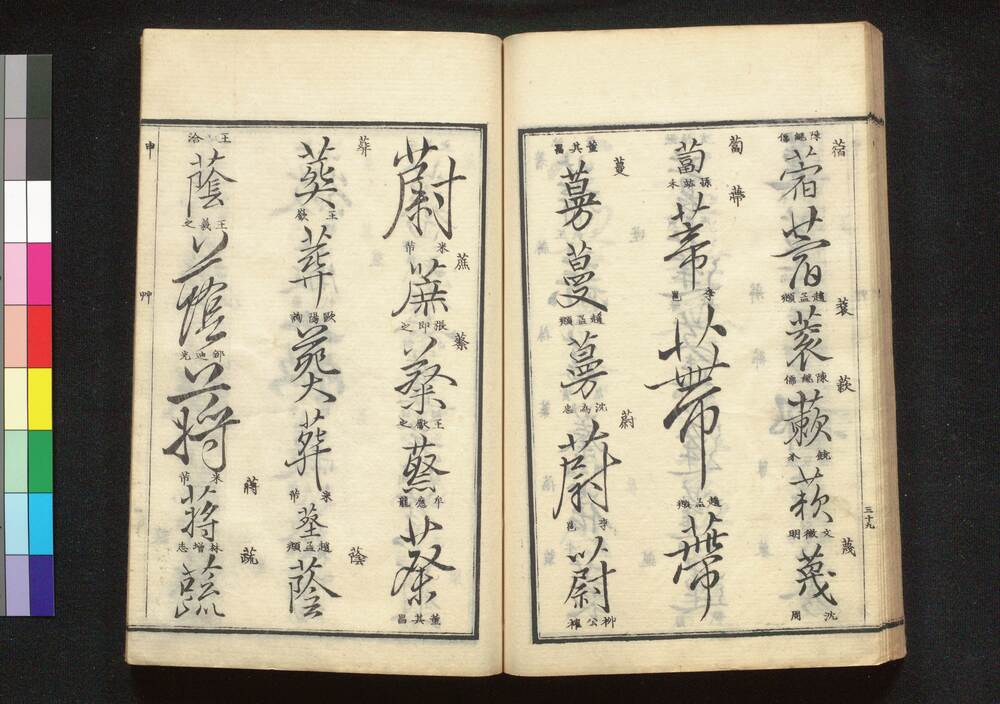 蓿 蓑 蔌 蔑
陳繼儒
蓿
蓿
趙孟頫
蓑
陳繼儒
蔌
蔌
文徵明
蔑
沈周
三十九
蔔 蔕
蔔
蔕
李邕
蔕
趙孟頫
蔕
蔓 蔚
董其昌
蔓
蔓
趙孟頫
蔓
沈為忠
蔚
李邕
蔚
柳公權
蔗 蔡
蔚
米芾
蔗
張即之
蔡
王獻之
蔡
牟應龍
蔡
董其昌
葬 蔭
葬
葬
歐陽詢
葬
葬
米芾
趙孟頫
蔭
蔣 蔬
王洽
蔭
王羲之
蔭
鄒迪光
蔣
米芾
蔣
林增志
蔬
申
艸